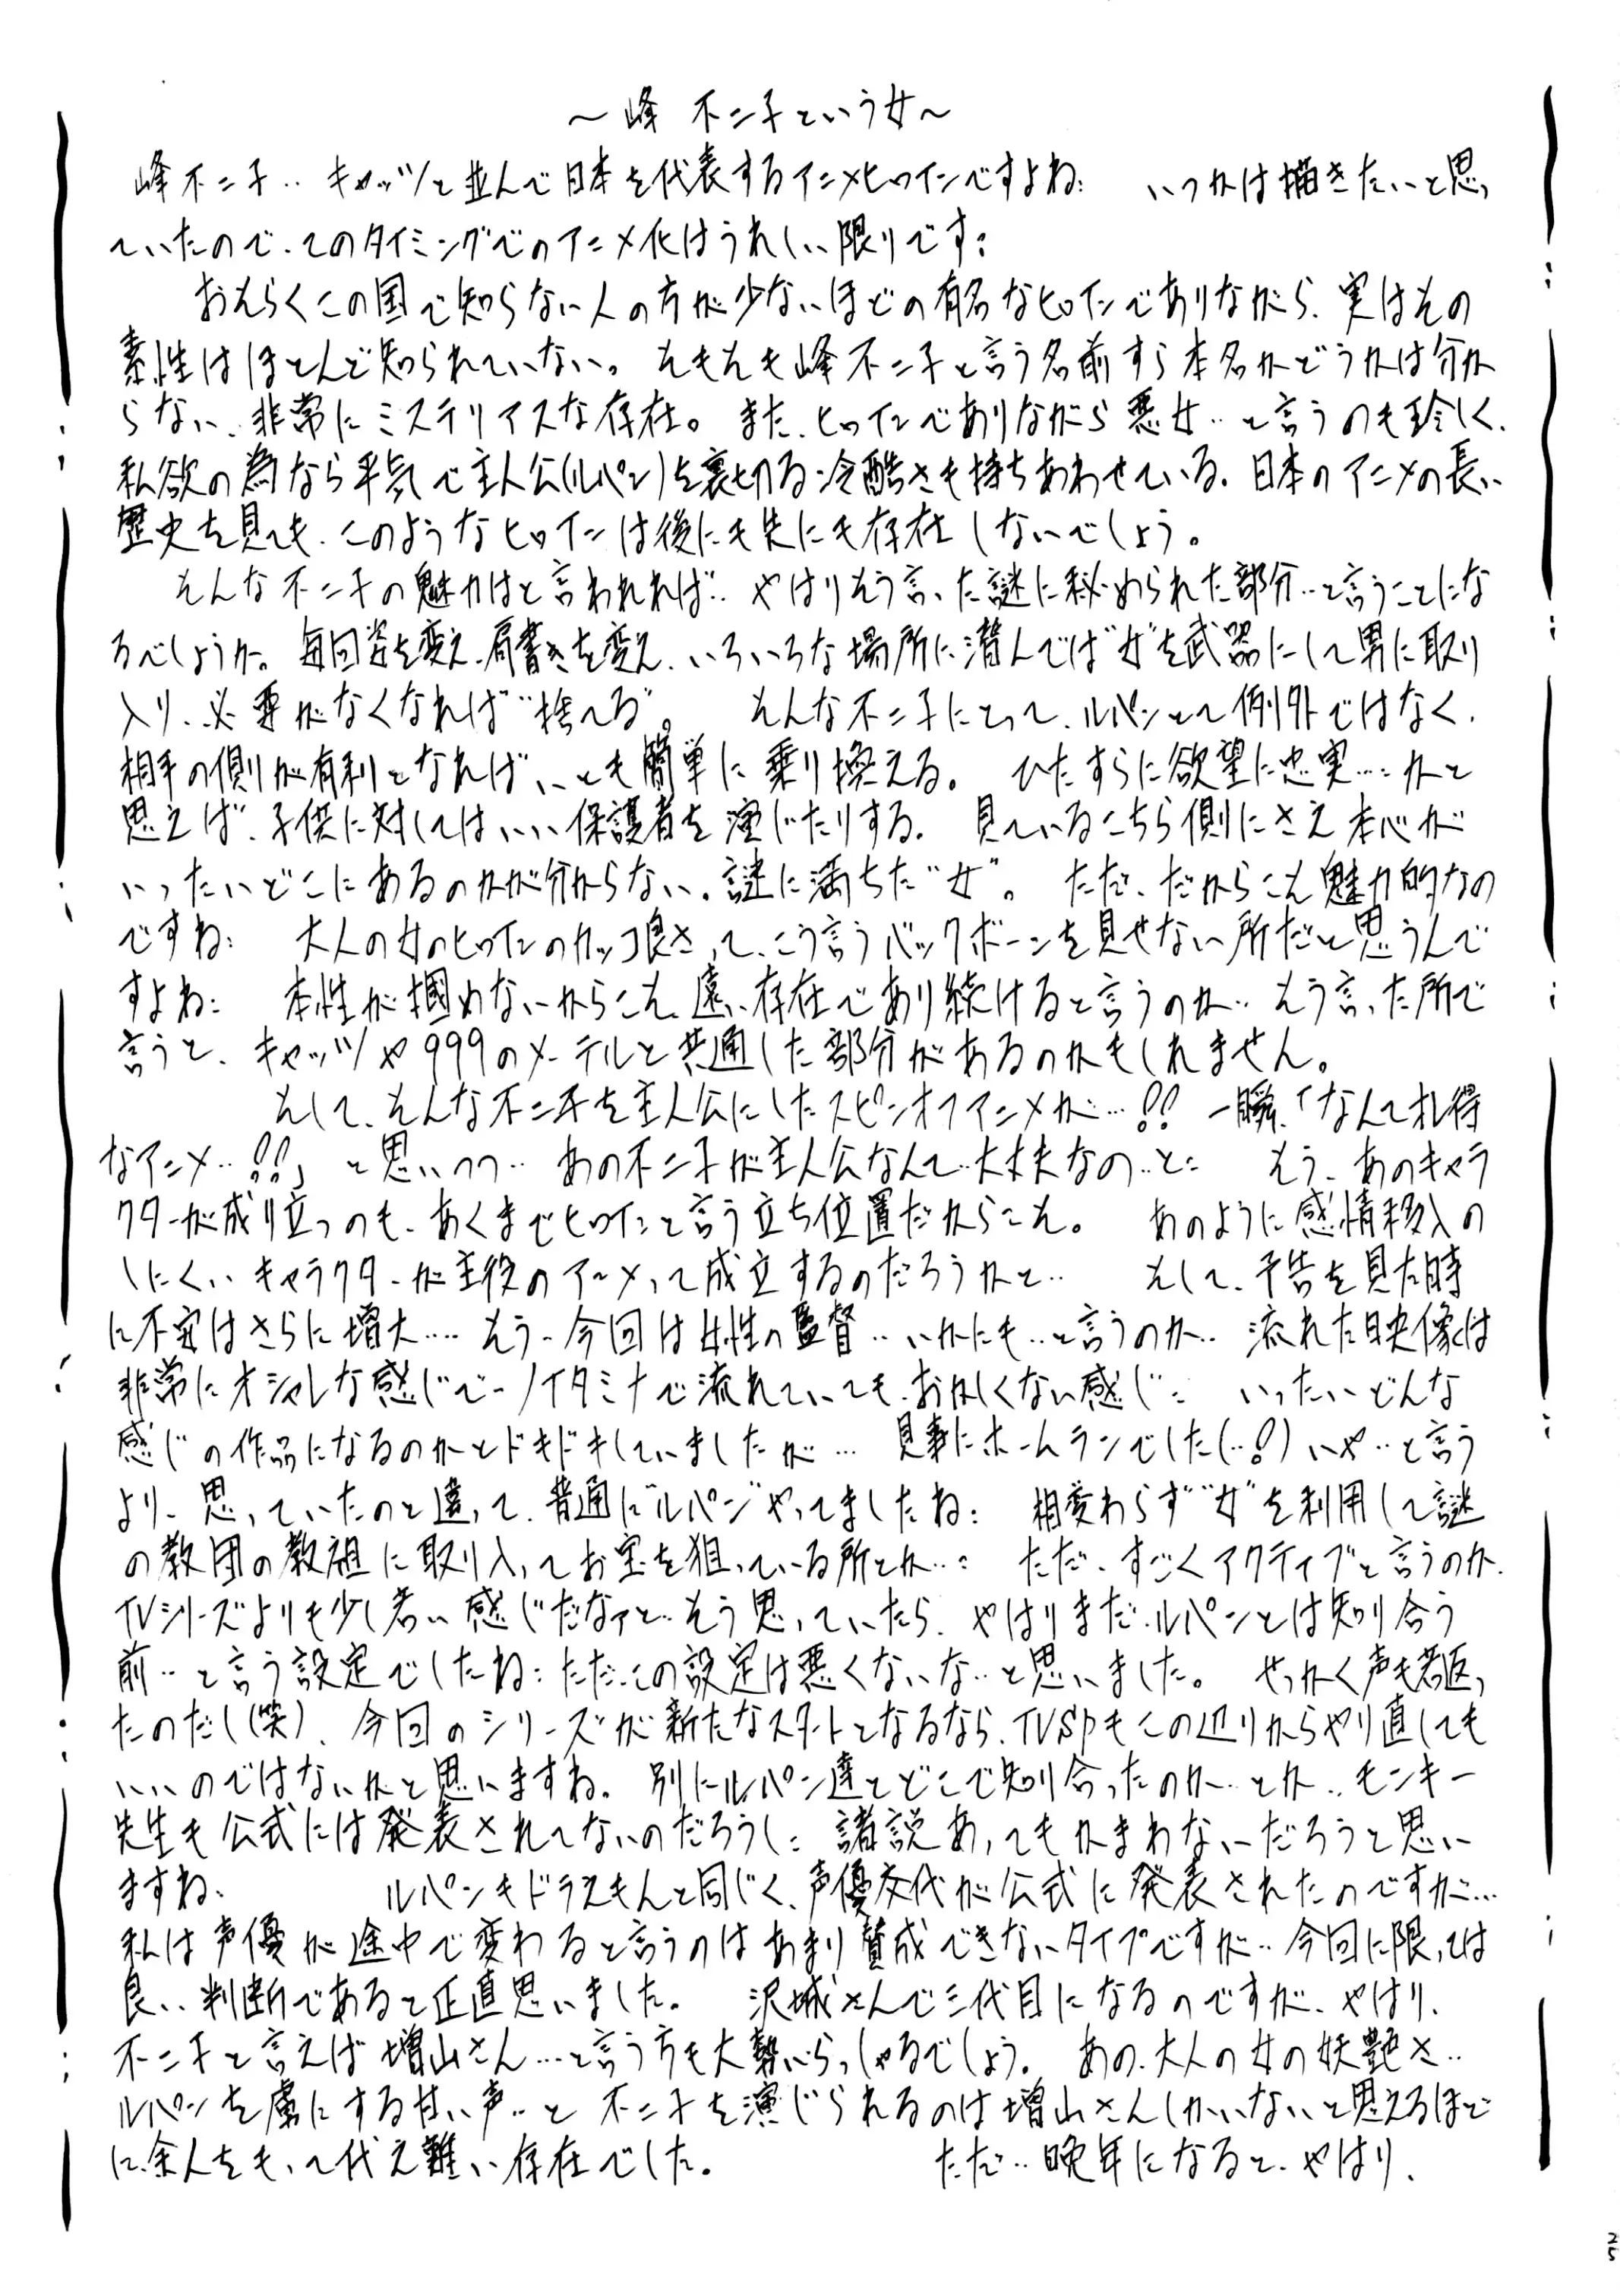 ～峰 不二子という女～
峰不二子‥キャッツと並んで日本を代表するアニメヒロインですよね: いつかは描きたいと思っ
ていたので、このタイミングでのアニメ化はうれしい限りです:
おそらくこの国で知らない人の方が少ないほどの有名なヒロインでありながら、実はその
素性はほとんど知られていない。そもそも峰不二子と言う名前すら本名かどうかは分か
らない、非常にミステリアスな存在。また、ヒロインでありながら悪女‥と言うのも珍しく、
私欲の為なら平気で主人公(ルパン)を裏切る冷酷さも持ちあわせている。日本のアニメの長い
歴史を見ても、このようなヒロインは後にも先にも存在しないでしょう。
そんな不二子の魅力はと言われれば‥やはりそう言った謎に秘められた部分‥と言うことにな
るでしょうか。毎回姿を変え、肩書きを変え、いろいろな場所に潜んでは"女"を武器にして男に取り
入り、必要がなくなれば"捨てる"。 そんな不二子にとって、ルパンとて例外ではなく、
相手の側が有利となれば、いとも簡単に乗り換える。 ひたすらに欲望に忠実…:かと
思えば、子供に対してはいい保護者を演じたりする。 見ているこちら側にさえ本心が
いったいどこにあるのかが分からない。謎に満ちた"女"。 ただ、だからこそ魅力的なの
ですね: 大人の女のヒロインのカッコ良さって、こう言うバックボーンを見せない所だと思うんで
すよね: 本性が掴めないからこそ、遠い存在であり続けると言うのか‥そう言った所で
言うと、キャッツや999のメーテルと共通した部分があるのかもしれません。
そして、そんな不二子を主人公にしたスピンオフアニメが…!! 一瞬、「なんてオレ得
なアニメ‥!!」 と思いつつ‥ あの不二子が主人公なんて‥大丈夫なの‥と: もう、あのキャラ
クターが成り立つのも、あくまでヒロインと言う立ち位置だからこそ。 あのように感情移入の
しにくいキャラクターが主役のアニメって成立するのだろうかと‥ そして、予告を見た時
に不安はさらに増大…. もう‥今回は女性の監督‥いかにも‥と言うのか‥ 流れた映像は
非常にオシャレな感じで‥ノイタミナで流れていても、おかしくない感じ: いったいどんな
感じの作品になるのかとドキドキしていましたが… 見事にホームランでした(‥!)いや‥と言う
より、思っていたのと違って、普通に"ルパン"やってましたね: 相変わらず"女"を利用して謎
の教団の教祖に取り入ってお宝を狙っている所とか…: ただ、すごくアクティブと言うのか、
TVシリーズよりも少し若い感じだなァと‥そう思っていたら、やはりまだ、ルパンとは知り合う
前‥と言う設定でしたね:ただ、この設定は悪くないな‥と思いました。 せっかく声も若返っ
たのだし(笑)、今回のシリーズが新たなスタートとなるなら、TVSPもこの辺りからやり直しても
いいのではないかと思いますね。別にルパン達とどこで知り合ったのか‥とか‥モンキー
先生も公式には発表されてないのだろうし: 諸説あってもかまわないだろうと思い
ますね: ルパンもドラえもんと同じく、声優交代が公式に発表されたのですが…
私は声優が途中で変わると言うのはあまり賛成できないタイプですが‥今回に限っては
良い判断であると正直思いました。 沢城さんで三代目になるのですが、やはり、
不二子と言えば増山さん…と言う方も大勢いらっしゃるでしょう。 あの、大人の女の妖艶さ‥
ルパンを虜にする甘い声‥と 不二子を演じられるのは増山さんしかいないと思えるほど
に、余人をもって代え難い存在でした。 ただ‥晩年になると、やはり、
25